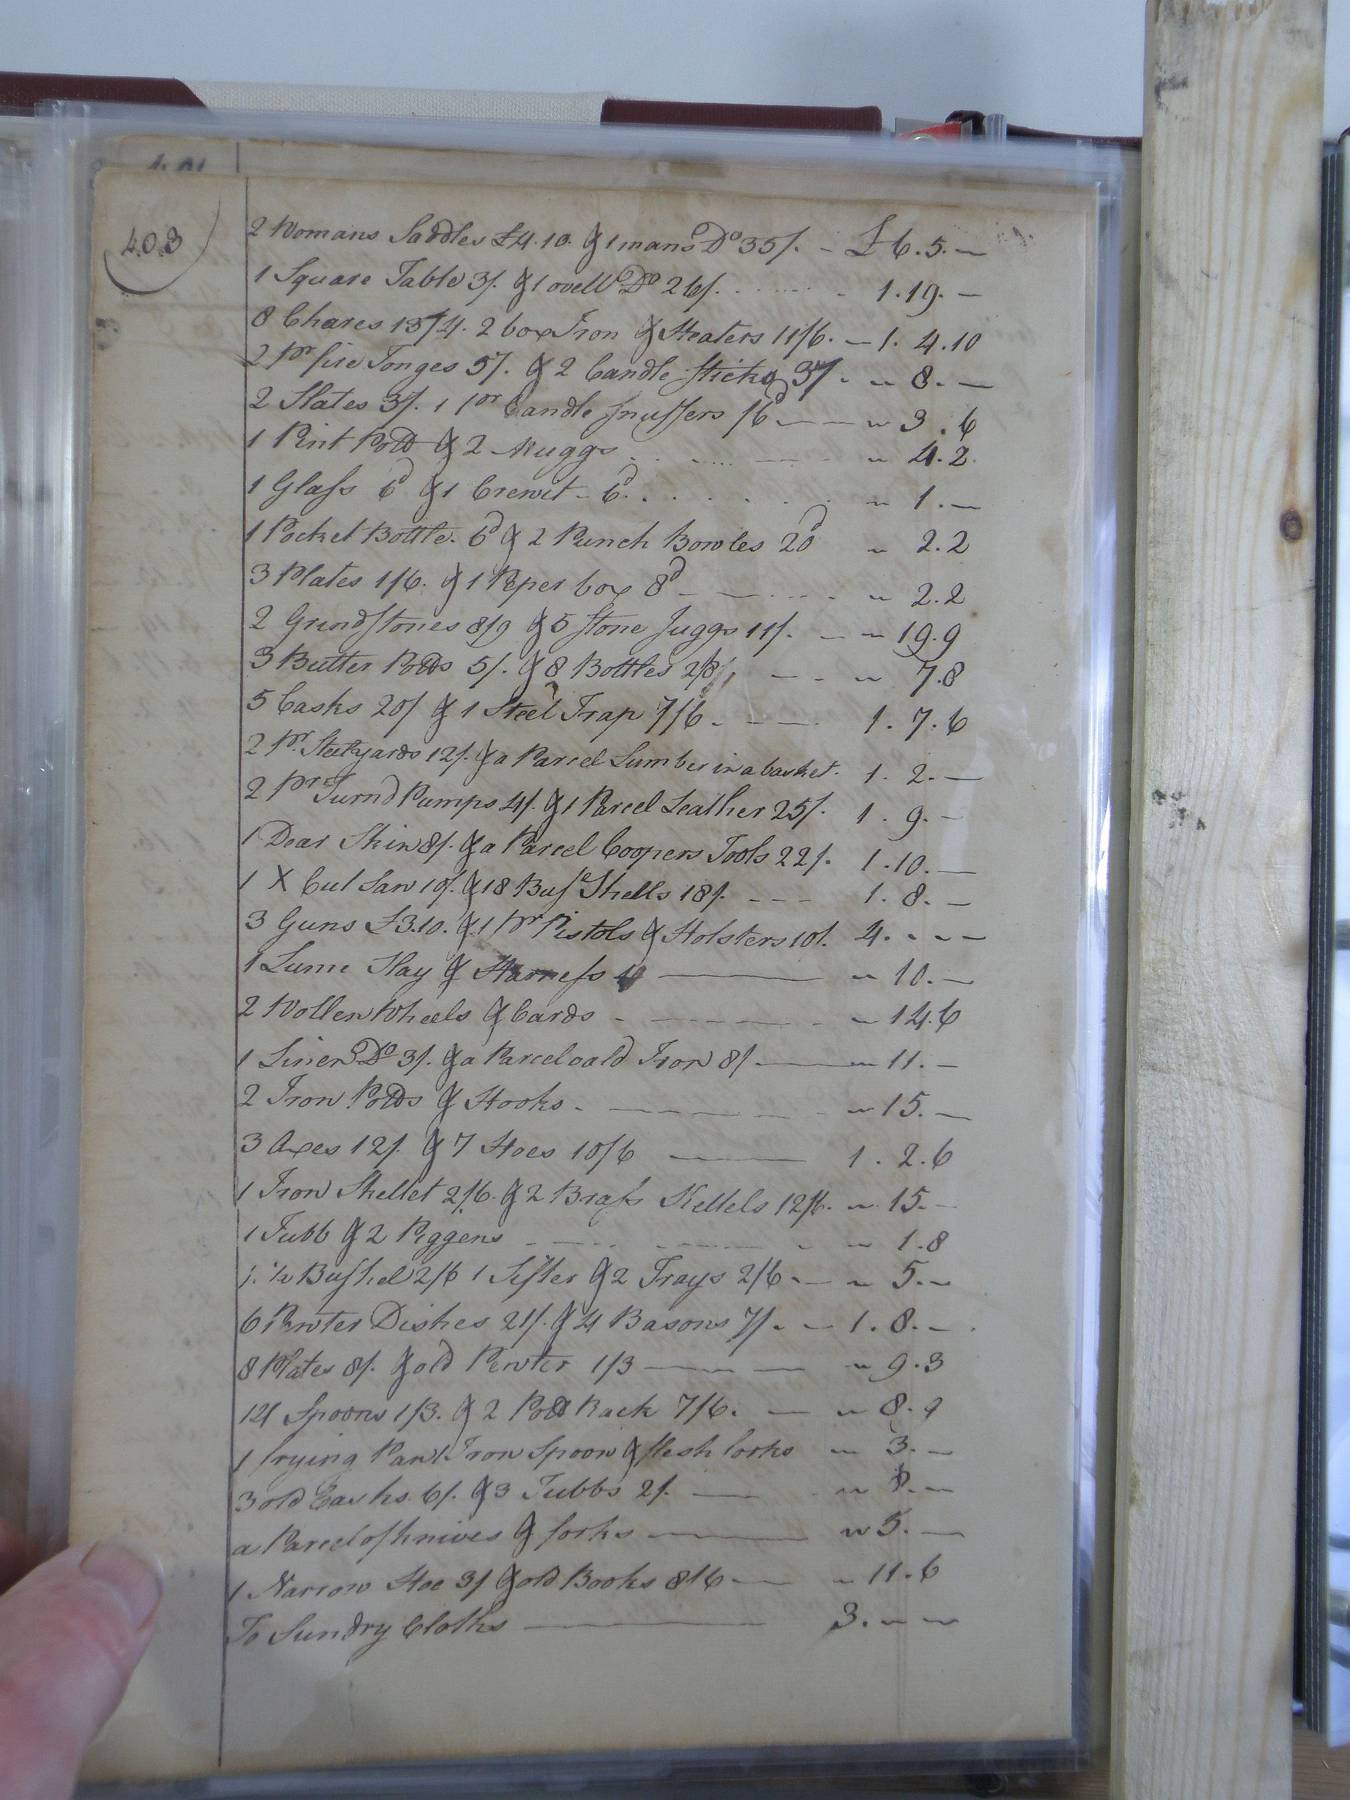 403
2 Womans Saddles £4.10. & 1 mans Do 35/. - £ 6.5.—
1 Square Table 3/. & 1 ovell Do 26/. . . . . . . - 1.19.—
8 Chares 13/4. 2 box Iron & Heaters 11/6. — 1. 4.10
2 Pr fire Tonges 5/. & 2 Candle sticks 3/. - " 8.—
2 Slates 3/. 1 pr Candle snuffers /6d — — " 3.6
1 Pint Pott & 2 Muggs . . . . — — " 4.2
1 Glass 6d & 1 Crewit - 6d . . . . . " 1.—
1 Pocket Bottle. 6d & 2 Punch Bowles 20d " 2.2
3 Plates 1/6. & 1 Peper box 8d - — . . . - " 2.2
2 Grindstones 8/9 & 5 stone Juggs 11/. — " 19.9
3 Butter Potts 5/. & 8 Bottles 2/8/. — - " 7.8
5 Casks 20/ & 1 Steel Trap 7/6 - - — 1. 7. 6
2 Pr. Steelyards 12/. & a Parcel Lumber in a basket. 1. 2.—
2 Pr Turnd Pumps 4/. & 1 Parcel Leather 25/. 1. 9.-
1 Dear Skin 8/. & a Parcel Coopers Tools 22/. 1.10.—
1 X Cut Saw 10/. & 18 Busl Shells 18/. - - - 1. 8.—
3 Guns £3.10. & 1 Pr Pistols & Holsters 10/. 4. - - -
1 Lume Slay & Harness — " 10.—
2 Wollen Wheels & Cards - — — - " 14.6
1 Linen Do 3/. & a Parcel oald Iron 8/ — " 11.—
2 Iron Potts & Hooks - — — - " 15.—
3 Axes 12/. & 7 Hoes 10/6 — 1. 2.6
1 Iron Skellet 2/6. & 2 Brass Kettels 12/6. " 15.—
1 Tubb & 2 Piggens - — — - " 1.8
1. ½ Bushel 2/6 1 Sifter & 2 Trays 2/6 - — " 5.—
6 Pewter Dishes 21/. & 4 Basons 7/. - — 1. 8.—
8 Plates 8/. & old Pewter 1/3 — — " 9.3
14 Spoons 1/3. & 2 Pott Rack 7/6. — " 8.9
1 frying Pan 1 Iron Spoon & flesh forks " 3.—
3 old Casks 6/. & 3 Tubbs 2/. — " 8.—
a Parcel of knives & forks — " 5.—
1 Narrow Hoe 3/ & old Books 8/6 — " 11.6
To Sundry Cloths — 3. " "